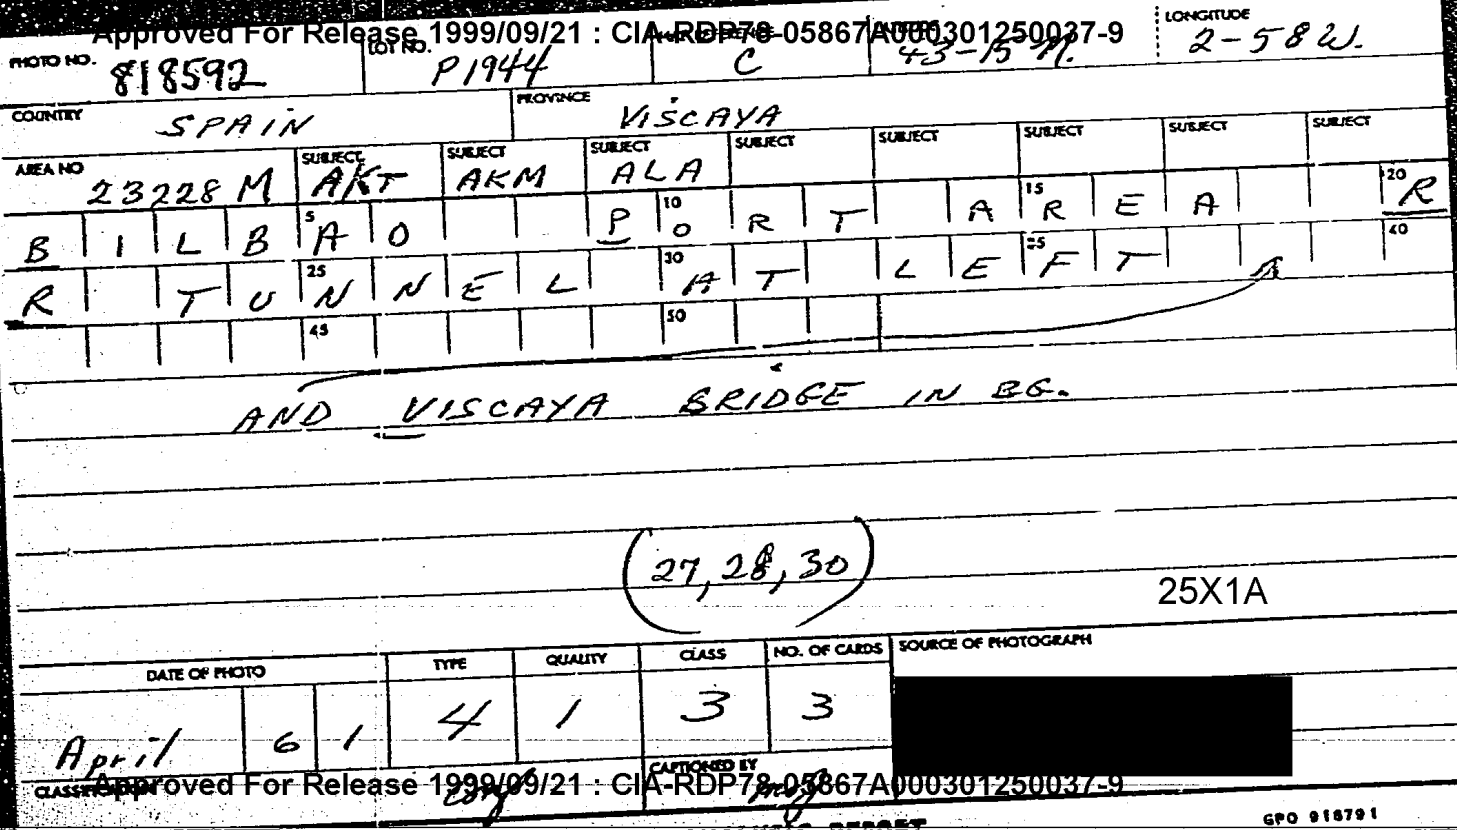 Approved For Release 1999/09/21 : CIA-RDP78-05867A000301250037-9
PHOTO NO. 818592 LOT NO. P1944 C 43-15 N. LONGITUDE 2-58 W.
COUNTRY SPAIN PROVINCE VISCAYA
AREA NO 23228 M SUBJECT AKT SUBJECT AKM SUBJECT ALA SUBJECT SUBJECT SUBJECT SUBJECT SUBJECT
BILB 5 AO P 10 ORT A 15 REA 20 R
R TU 25 NNEL 30 AT LE 35 FT 40
45 50
AND VISCAYA BRIDGE IN BG.
(27, 28, 30)
25X1A
DATE OF PHOTO TYPE QUALITY CLASS NO. OF CARDS SOURCE OF PHOTOGRAPH
April 61 4 1 3 3
CLASSIFICATION CAPTIONED BY
Approved For Release 1999/09/21 : CIA-RDP78-05867A000301250037-9
GPO 918791